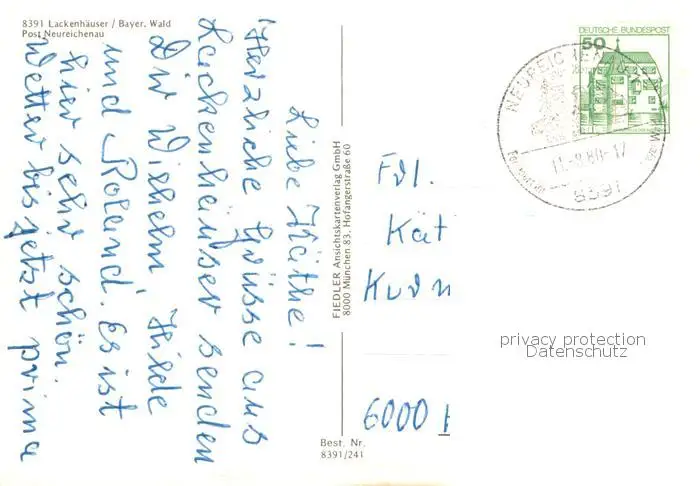 8391 Lackenhäuser / Bayer. Wald
Post Neureichenau
Liebe Käthe!
Herzliche Grüsse aus
Lackenhäuser senden
Dir Wilhelm, Hilde
und Roland. Es ist
hier sehr schön.
Wetter bis jetzt prima
FIEDLER Ansichtskartenverlag GmbH
8000 München 83, Hofangerstraße 60
Best. Nr.
8391/241
DEUTSCHE BUNDESPOST
50
NEUREICHENAU
8391
Frl.
Kät
6000
privacy protection
Datenschutz